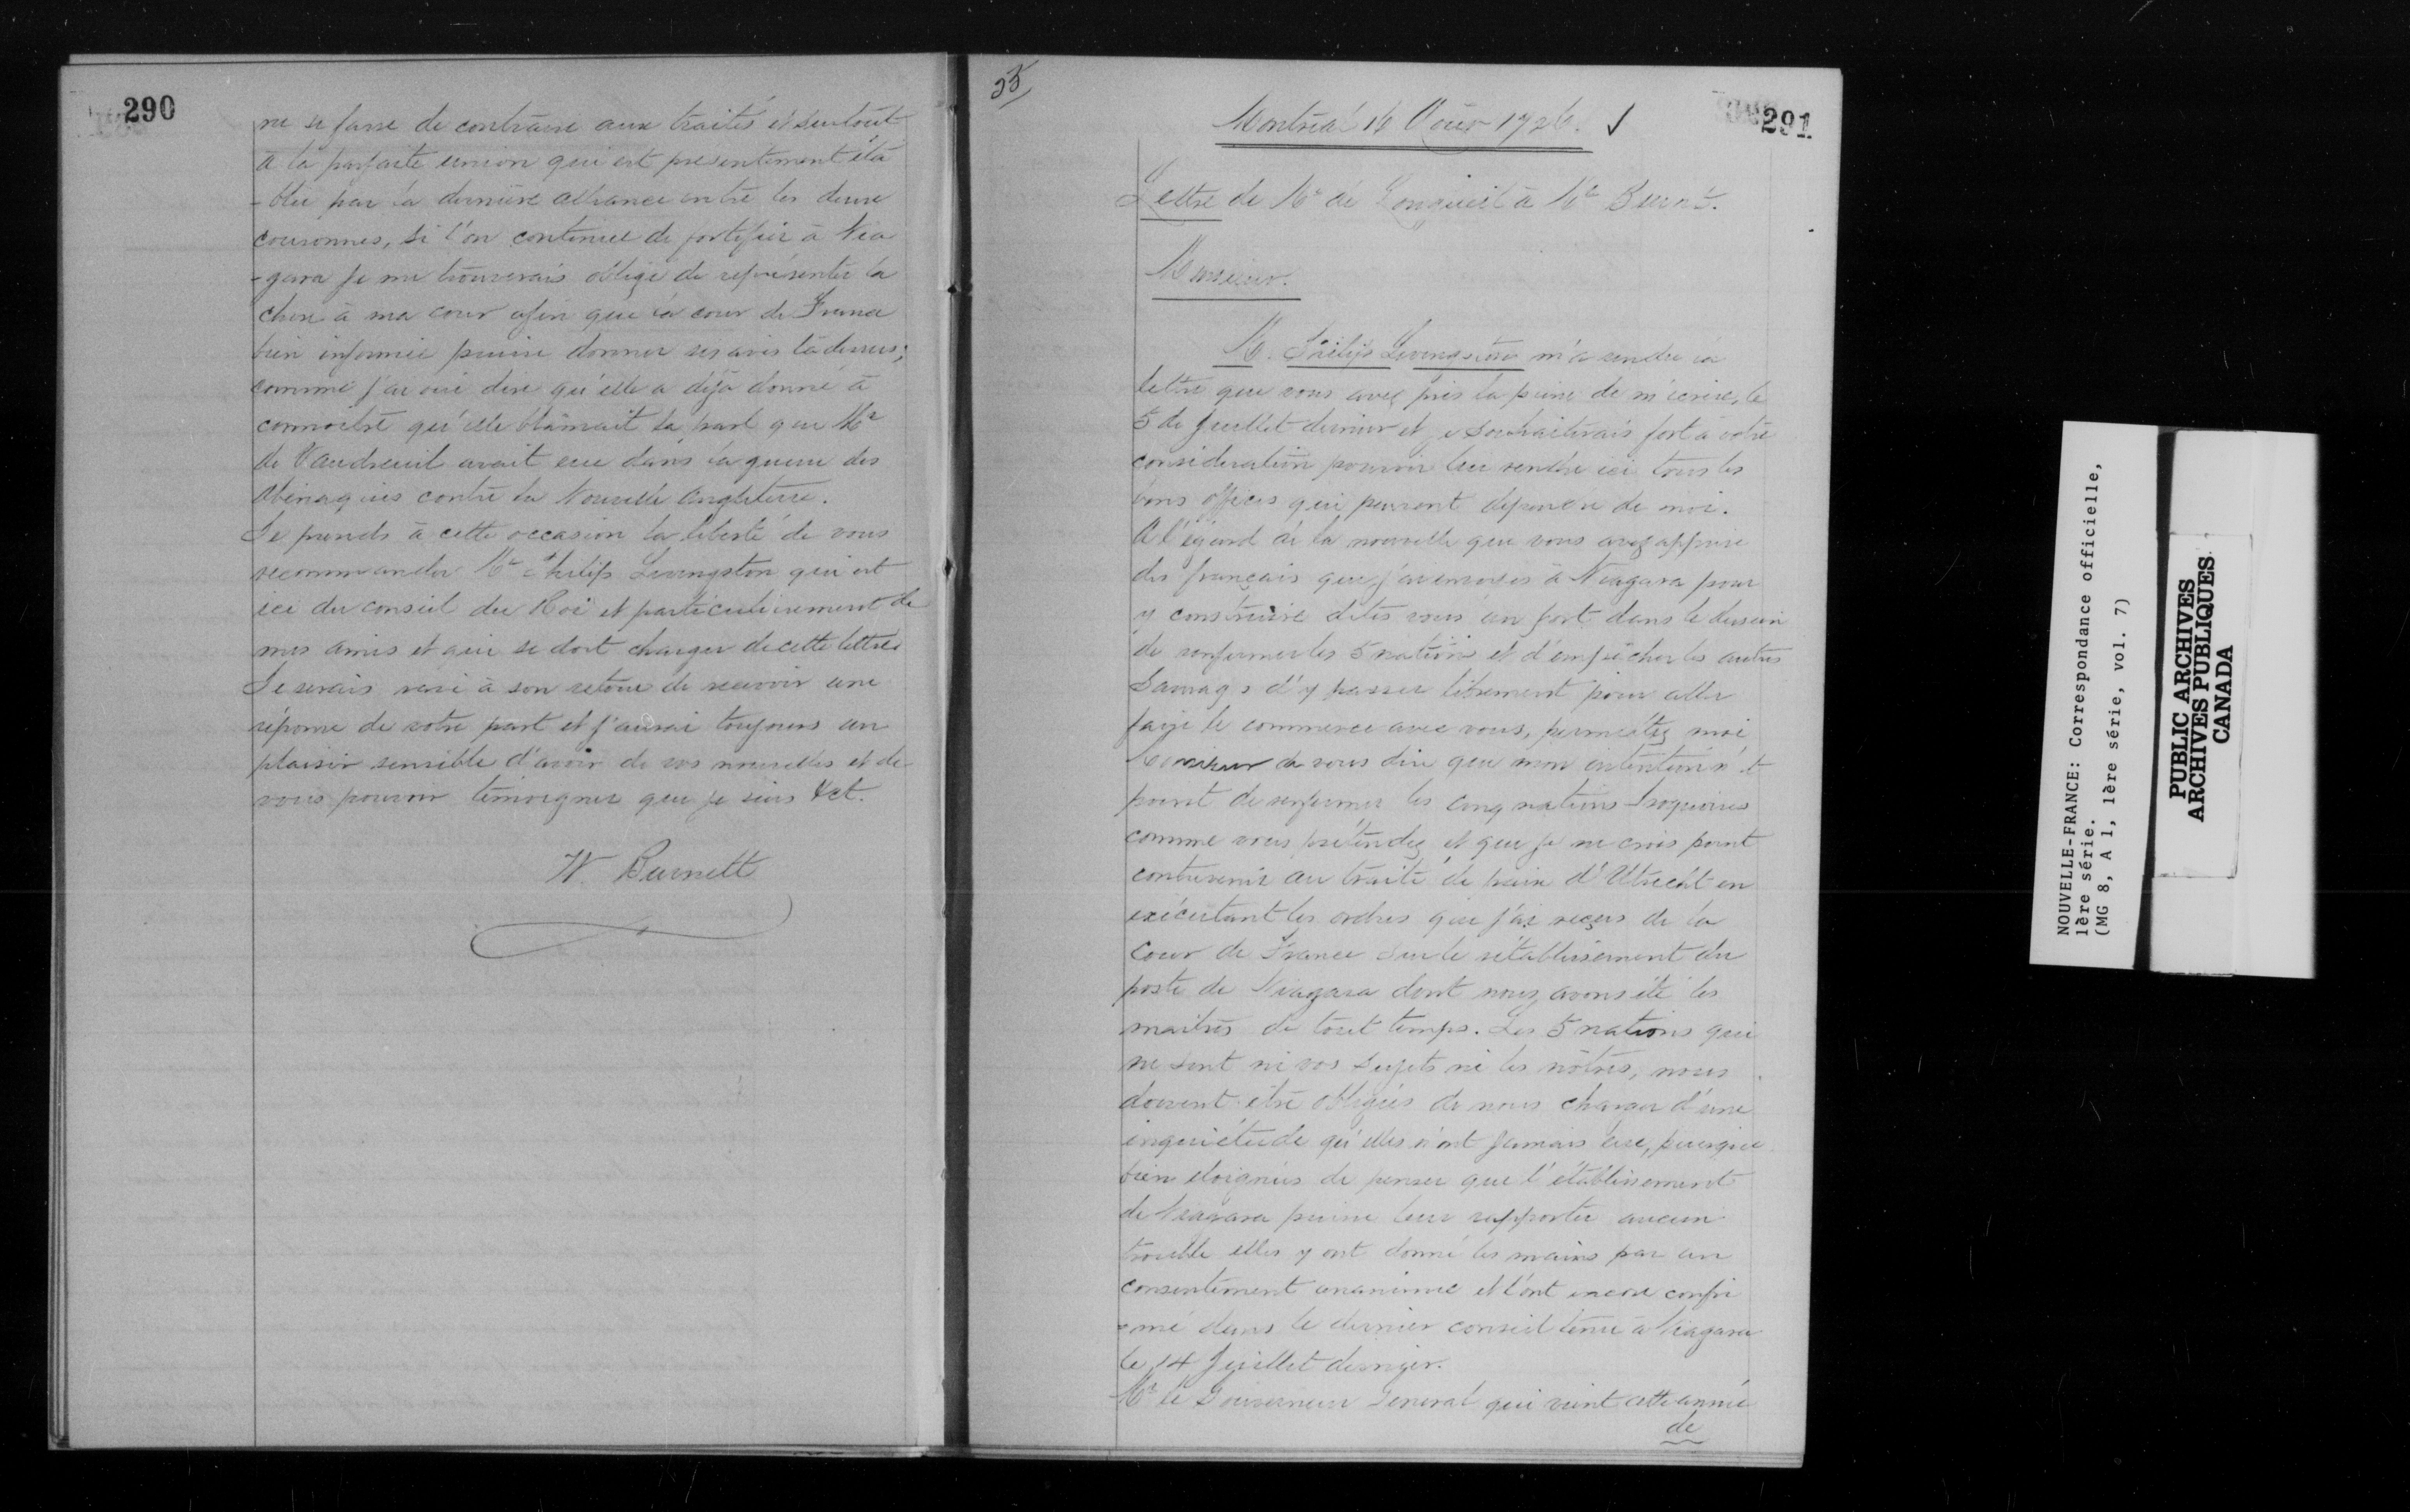 290
ne se fasse de contraire aux traités et surtout
à la parfaite union qui est presentement éta
-blie par la dernière alliance entre les deux
couronnes, si l'on continue de fortifier à Nia
-gara je me trouverais obligé de représenter la
chose à ma cour afin que la cour de France
bien informée puisse donner ses avis là dessus;
comme j'ai oui dire qu'elle a déjà donné à
connoître qu'elle blâmait la part que Mr
de Vaudreuil avait eue dans la guerre des
Abénaquis contre la Nouvelle Angleterre.
Je prends à cette occasion la liberté de vous
recommander Mr Philip Livingston qui est
ici du conseil du Roi et particulièrement de
mes amis et qui se doit charger de cette lettre
Je serais ravi à son retour de recevoir une
réponse de votre part et j'aurai toujours un
plaisir sensible d'avoir de vos nouvelles et de
vous pouvoir témoigner que je suis &ct.
W. Burnett
291
Montréal 16 Août 1726.
Lettre de Mr de Longueil à Mr Burnet.
Monsieur.
M. Philip Livingston m'a rendu la
lettre que vous avez pris la peine de m'écrire, le
5 de Juillet dernier et je souhaiterais fort à votre
consideration pouvoir lui rendre ici tous les
bons offices qui peuvent dépendre de moi.
A l'égard de la nouvelle que vous avez apprise
des français que j'ai envoyés à Niagara pour
y construire dites vous un fort dans le dessein
de renfermer les 5 nations et d'empêcher les autres
Sauvages d'y passer librement pour aller
faire le commerce avec vous, permettez moi
Monsieur de vous dire que mon intention n'est
point de renfermer les cinq nations Iroquoises
comme vous prétendez et que je ne crois point
contrevenir au traité de paix d'Utrecht en
exécutant les ordres que j'ai reçus de la
Cour de France sur le rétablissement du
poste de Niagara dont nous avons été les
maitres de tout temps. Les 5 nations qui
ne sont ni vos sujets ni les nôtres, nous
doivent être obligées de nous charger d'une
inquiétude qu'elles n'ont jamais eue, puisque
bien eloignées de penser que l'établissement
de Niagara puisse leur rapporter aucun
trouble elles y ont donné les mains par un
consentement unanime et l'ont encore confir
-mé dans le dernier conseil tenu à Niagara
le 14 Juillet dernier.
Mr le Gouverneur General qui vient cette année
de
NOUVELLE-FRANCE: Correspondance officielle,
1ère série.
(MG 8, A 1, 1ère série, vol. 7)
PUBLIC ARCHIVES
ARCHIVES PUBLIQUES
CANADA